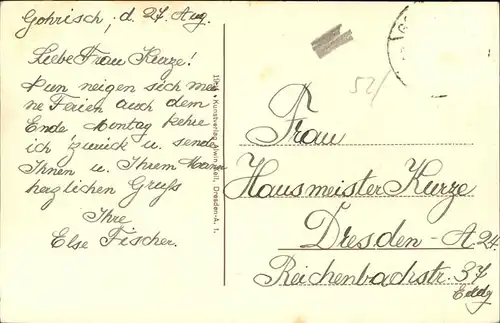 Gohrisch, d. 27. Aug.
Liebe Frau Kurze!
Nun neigen sich mei
ne Ferien auch dem
Ende Montag kehre
ich zurück u. sende
Ihnen u. Ihrem Mann
herzlichen Gruß
Ihre
Else Fischer.
Kunstverlag Dresden-A. 1.
52/
Frau
Hausmeister Kurze
Dresden-A 24.
Reichenbachstr. 37
Erdg